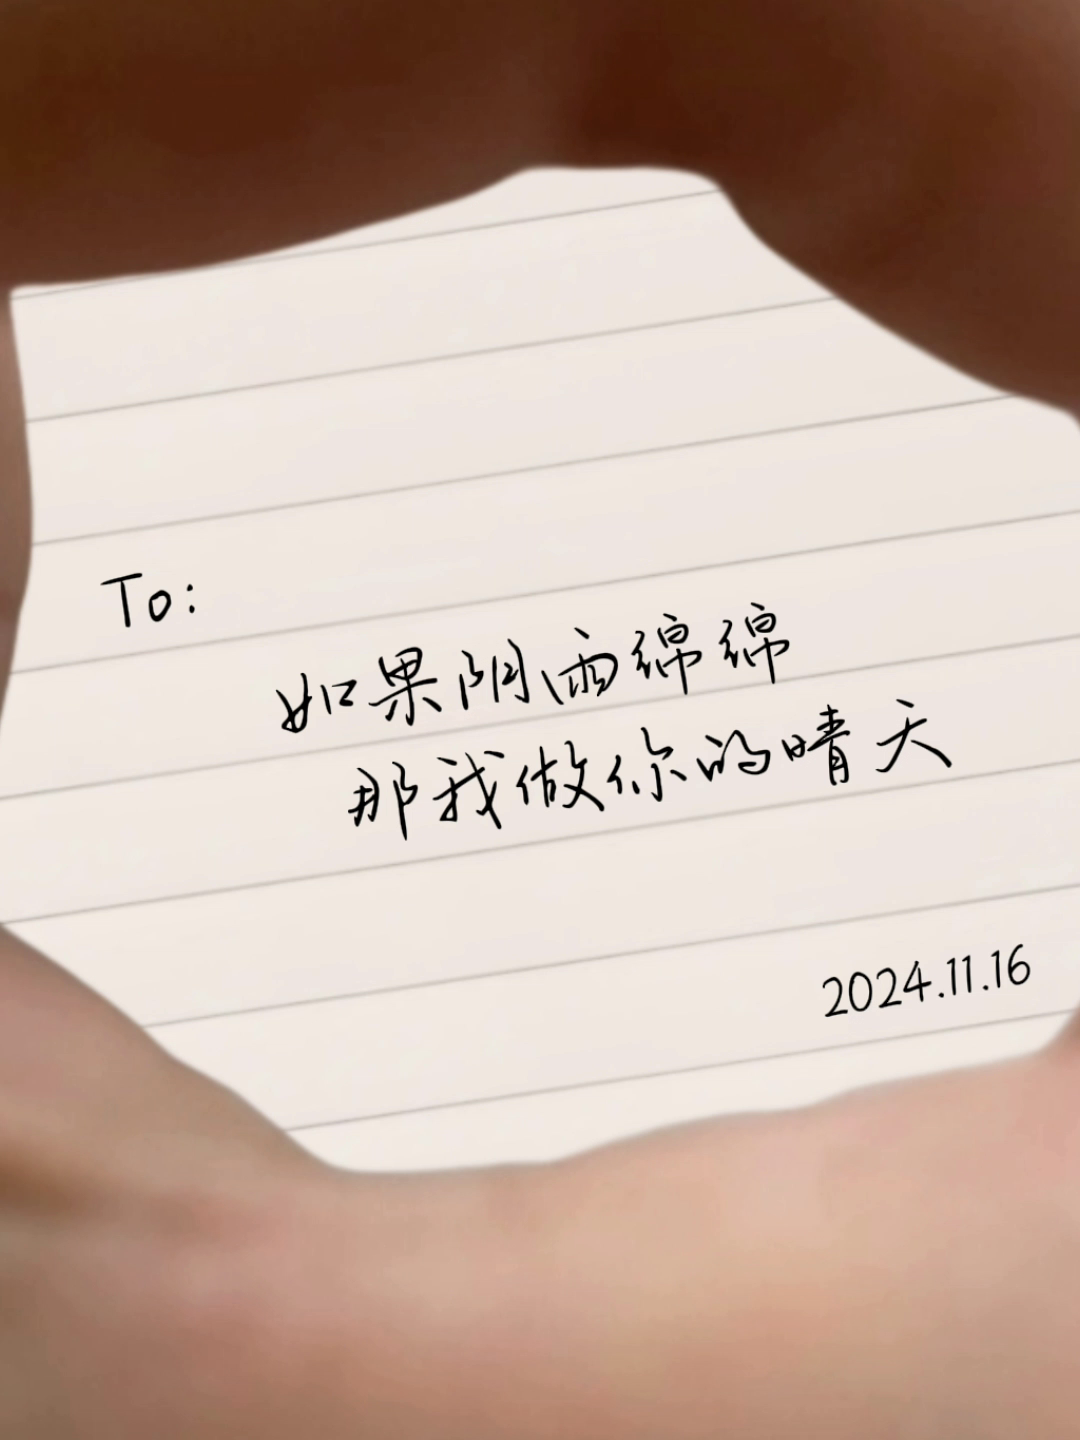 To:
如果阴雨绵绵
那我做你的晴天
2024.11.16